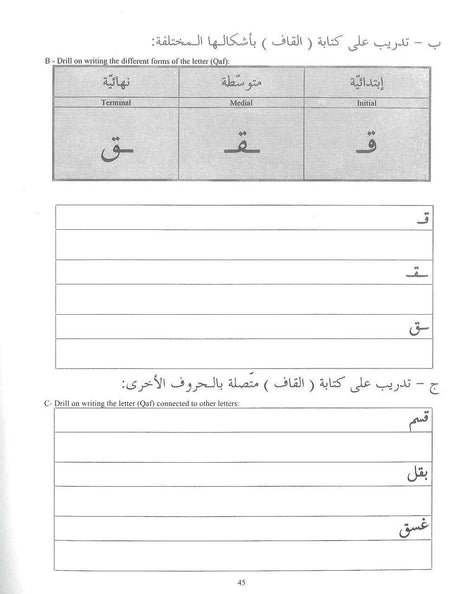 ب - تدريب على كتابة ( القاف ) بأشكالها المختلفة:
B - Drill on writing the different forms of the letter (Qaf):
إبتدائيّة متوسّطة نهائيّة
Initial Medial Terminal
قـ ـقـ ـق
قـ
ـقـ
ـق
ج - تدريب على كتابة ( القاف ) متّصلة بالحروف الأخرى:
C- Drill on writing the letter (Qaf) connected to other letters:
قسم
بقل
غسق
45